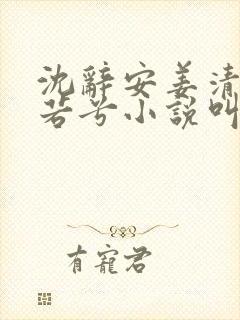 沈辭安姜清
若兮小說叫
有寵君